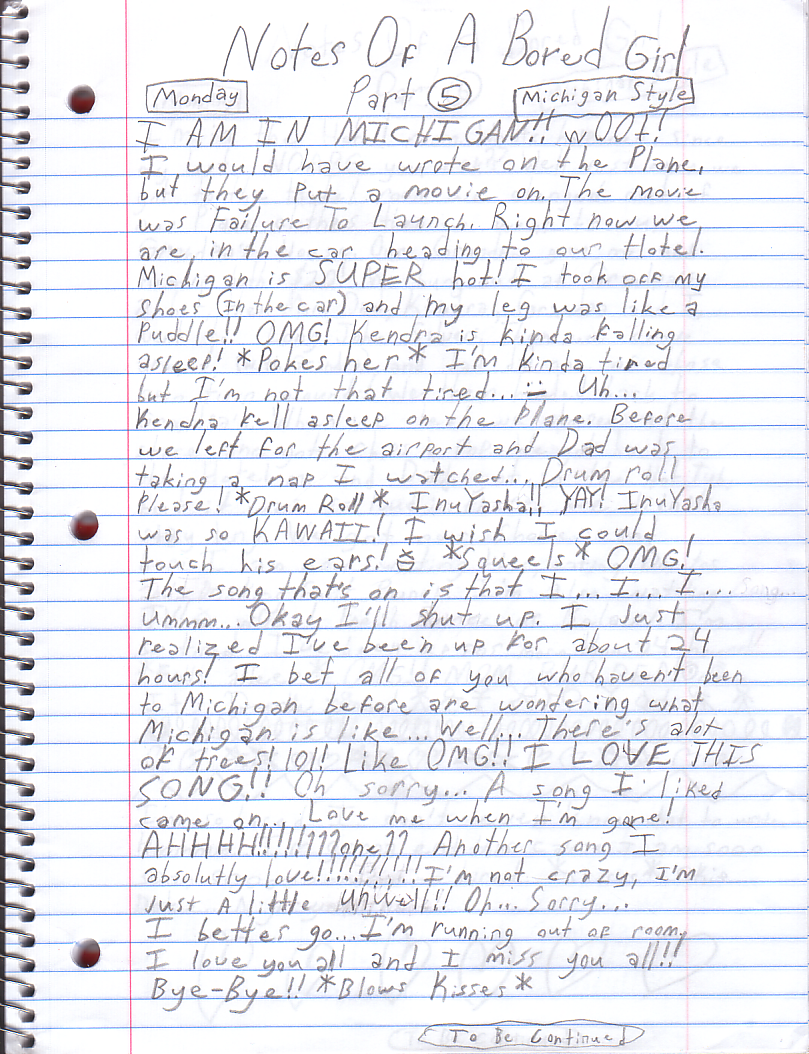 Notes Of A Bored Girl
Monday Part 5 Michigan Style
I AM IN MICHIGAN!! wOOt!
I would have wrote on the Plane,
but they put a movie on. The movie
was Failure To Launch. Right now we
are in the car heading to our Hotel.
Michigan is SUPER hot! I took off my
shoes (In the car) and my leg was like a
Puddle!! OMG! Kendra is kinda falling
asleep! *Pokes her* I'm kinda tired
but I'm not that tired... Uh...
Kendra fell asleep on the Plane. Before
we left for the airport and Dad was
taking a nap I watched... Drum roll
Please! *Drum Roll* InuYasha!! YAY! InuYasha
was so KAWAII! I wish I could
touch his ears! *Squeels* OMG!
The song that's on is that I... I... I...
Ummm... Okay I'll shut up. I Just
realized I've been up for about 24
hours! I bet all of you who haven't been
to Michigan before are wondering what
Michigan is like... Well... There's alot
of trees! lol! Like OMG!! I LOVE THIS
SONG!! Oh sorry... A song I liked
came on... Love me when I'm gone!
AHHHH!!!!!!111one11 Another song I
absolutly love!!!!!!!!!!! I'm not crazy, I'm
Just A little Unwell!! Oh... Sorry...
I better go... I'm running out of room.
I love you all and I miss you all!!
Bye-Bye!! *Blows Kisses*
To Be Continued